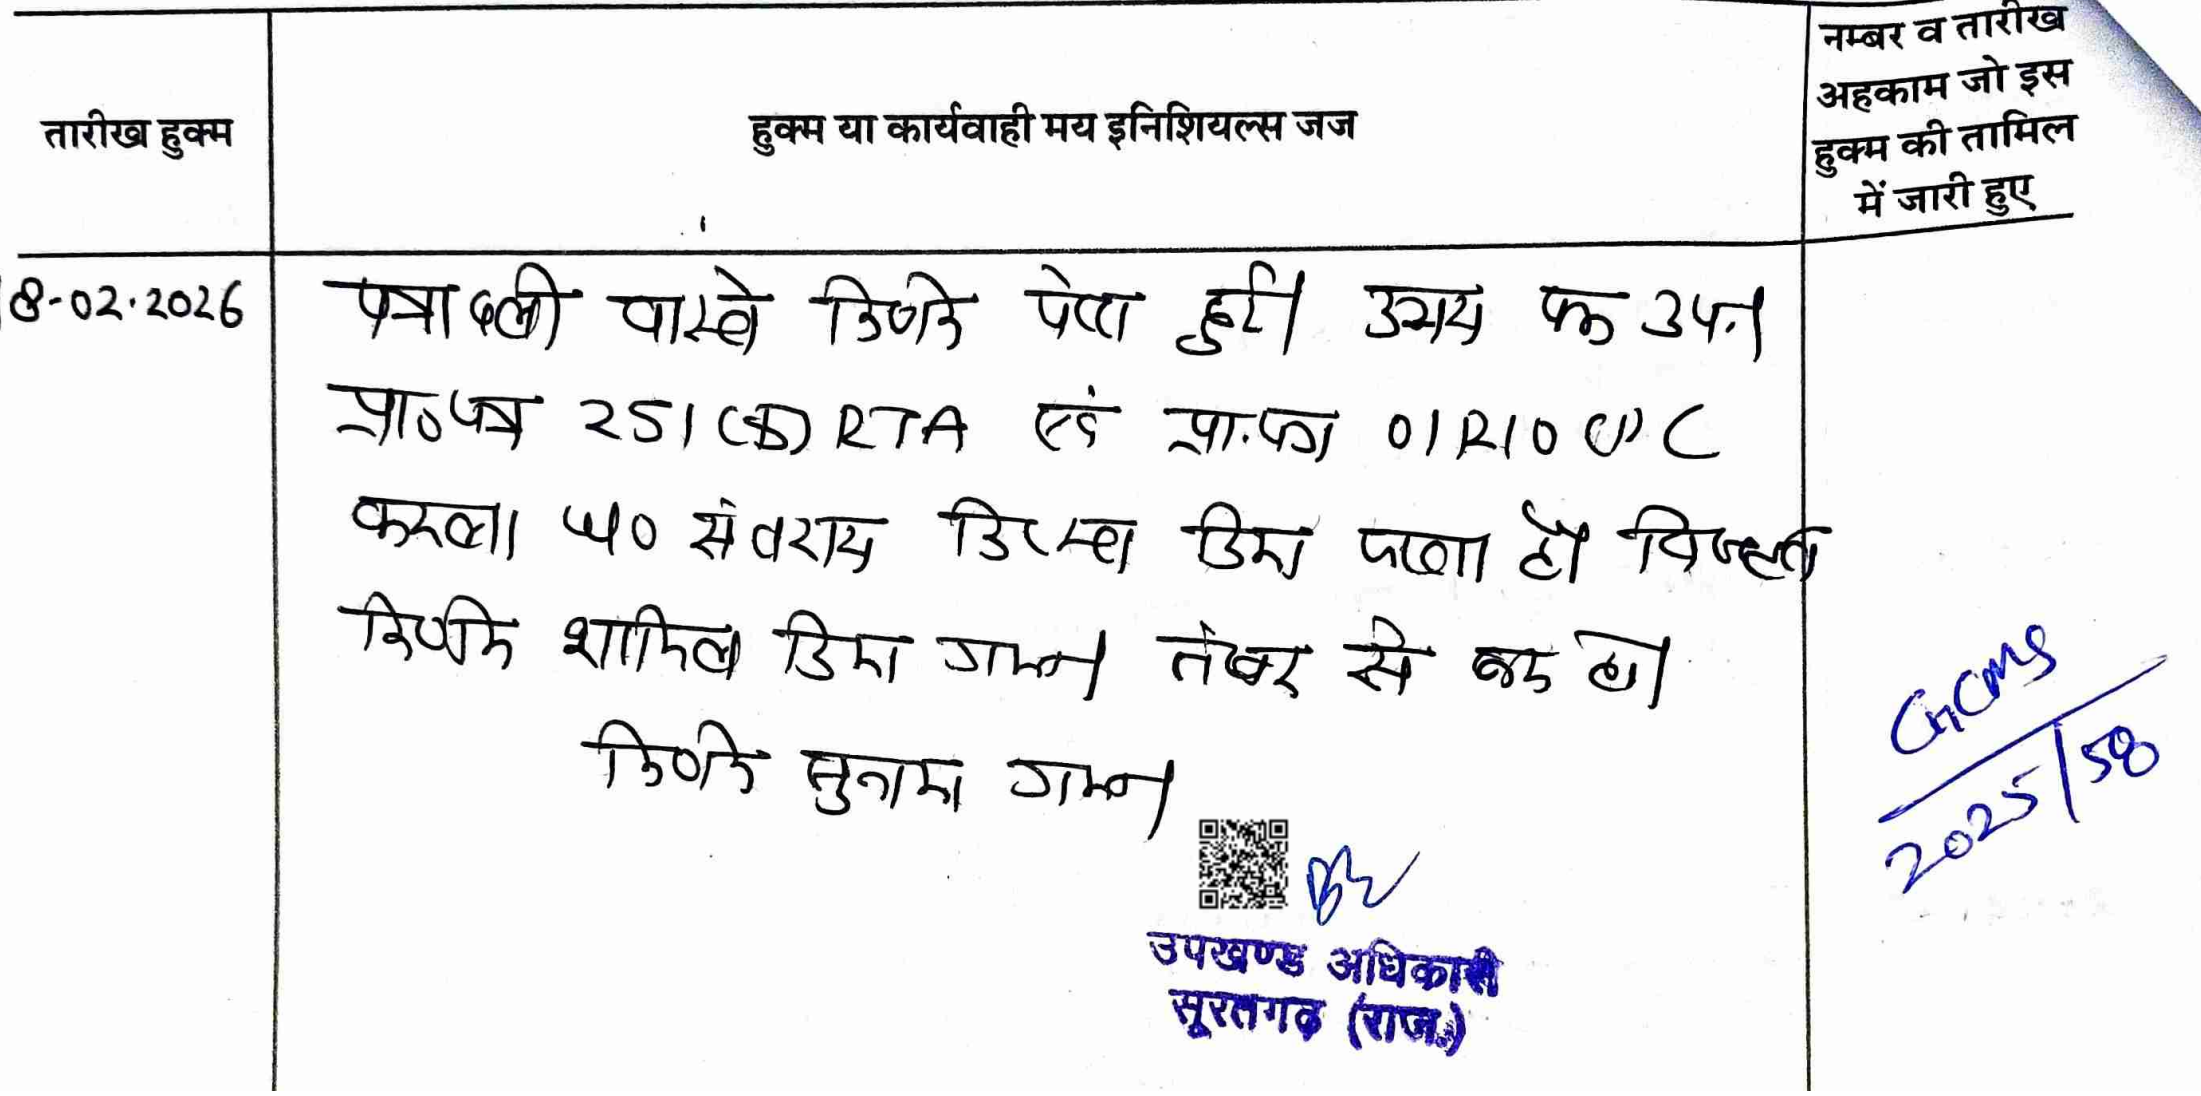 तारीख हुक्म
हुक्म या कार्यवाही मय इनिशियल्स जज
नम्बर व तारीख
अहकाम जो इस
हुक्म की तामिल
में जारी हुए
18-02-2026
पत्रावली वास्ते निर्णय पेश हुई। उभय पक्ष उप.।
प्रा०पत्र 251 RTA एवं प्रा.पत्र 01R10 CPC
किया जाता है। विस्तृत
निर्णय शामिल किया गया। नंबर से कम हो।
निर्णय सुनाया गया।
उपखण्ड अधिकारी
सूरतगढ़ (राज.)
GCMS
2025/58